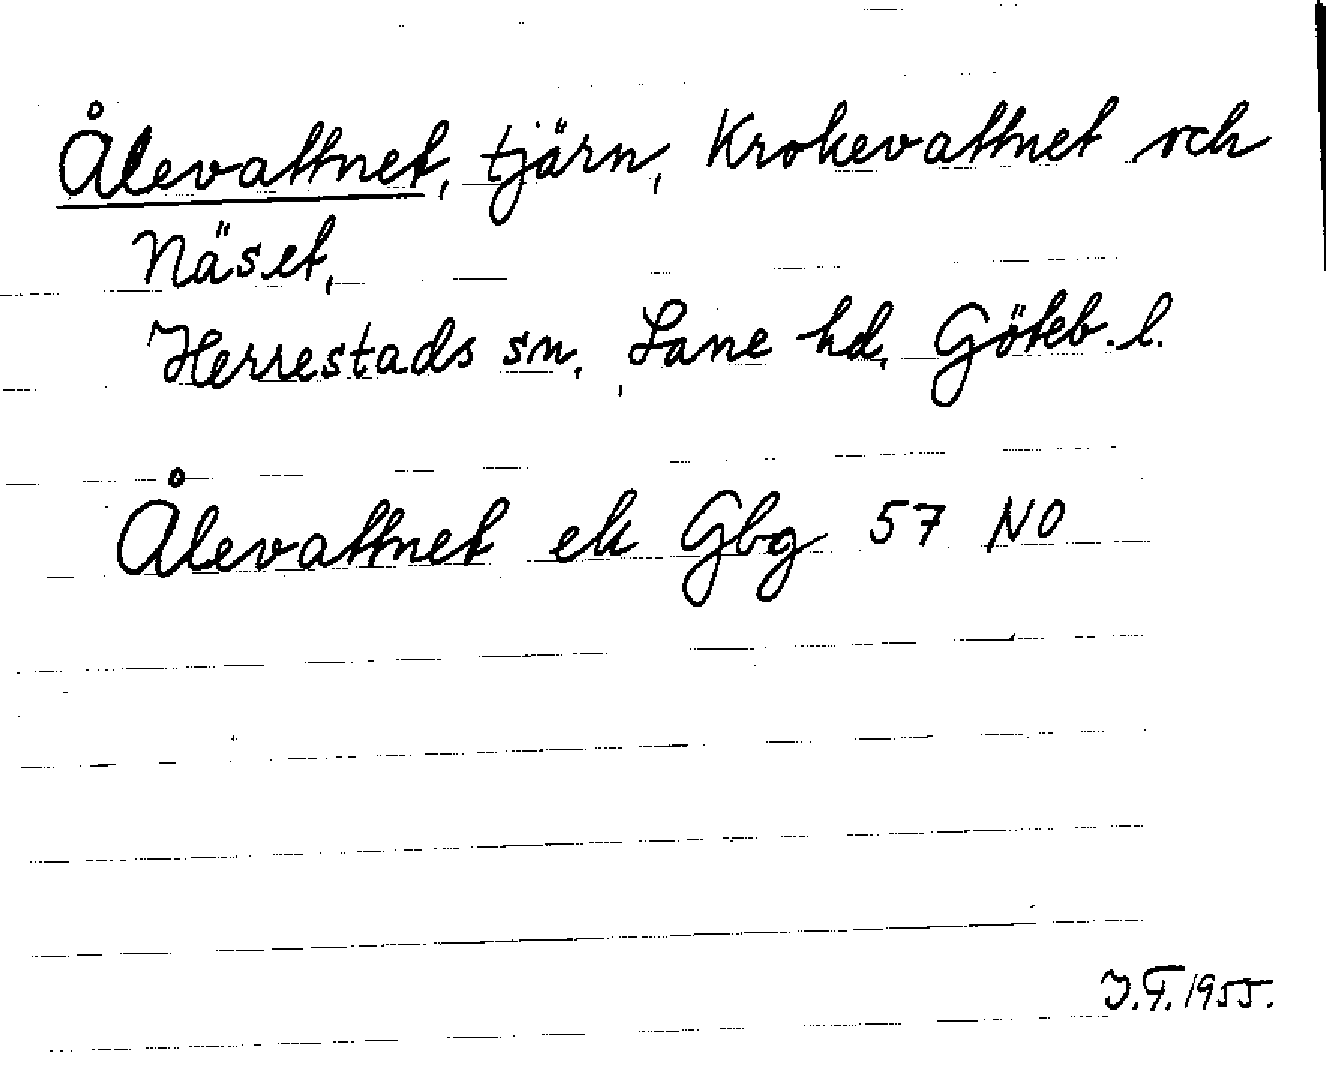 Ålevattnet, tjärn, Krokevattnet och
Näset,
Herrestads sn, Lane hd, Göteb. l.
Ålevattnet ek Gbg 57 NO
J.F. 1955.